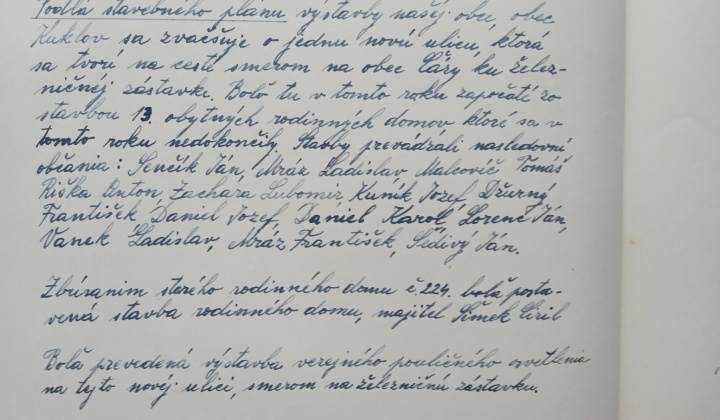 Podľa stavebného plánu výstavby našej obce, obec
Kuklov sa zväčšuje o jednu novú ulicu, ktorá
sa tvorí na cestí smerom na obec Čáry ku želez-
ničnéj zástavke. Bolo tu v tomto roku započaté zo
stavbou 13. obytných rodinných domov ktoré sa v
tomto roku nedokončily. Stavby prevádzali nasledovní
občania: Senčík Ján, Mráz Ladislav Malcovič Tomáš
Riška Anton, Zachara Lubomír, Kuník Jozef, Džurný
František, Daniel Jozef, Daniel Karol, Lorenc Ján,
Vanek Ladislav, Mráz František, Šedivý Ján.
Zbúraním starého rodinného domu č. 224. bola posta-
vená stavba rodinného domu, majitel Šimek Ciril
Bola prevedená výstavba verejného pouličného osvetlenia
na tejto novéj ulici, smerom na železničnú zástavku.